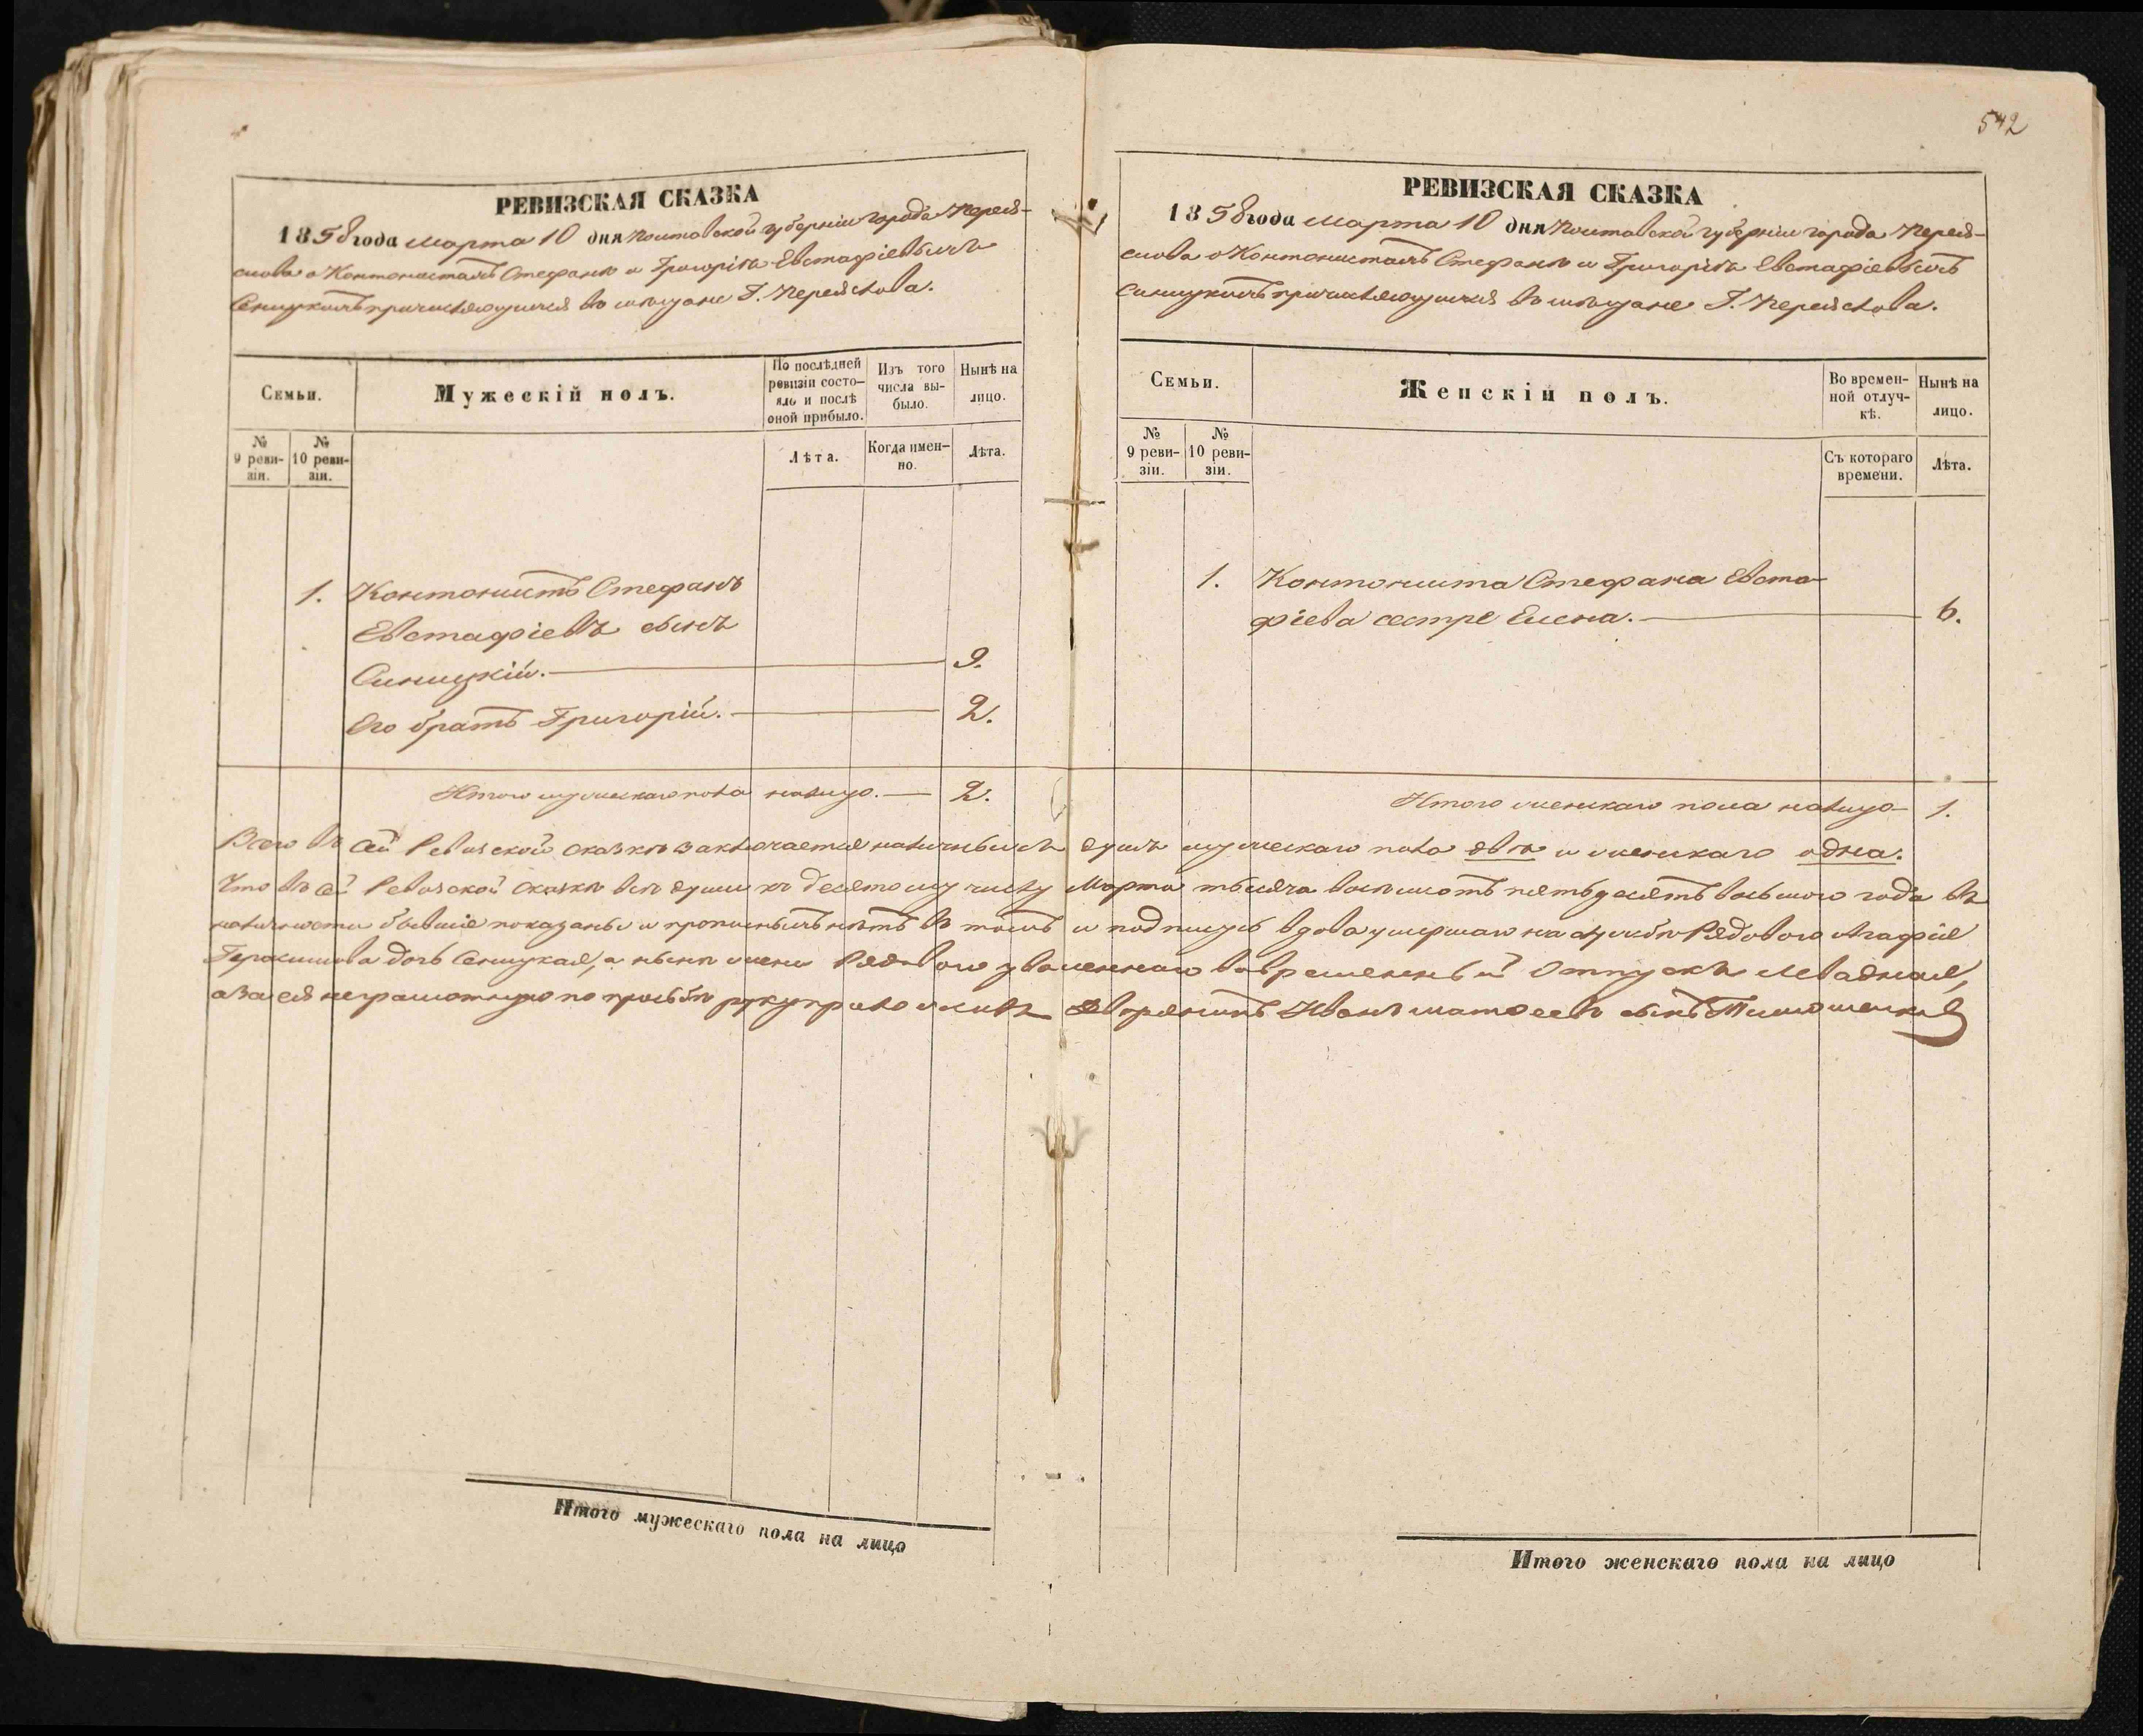 РЕВИЗСКАЯ СКАЗКА
1858 года Марта 10 дня Полтавской губерніи города Перея-
слова о Контонистахъ Стефанѣ и Григоріѣ Евстафіевыхъ
Синицкихъ причисляющихся въ мѣщане Г. Переяслова.
Семьи.
Мужескій полъ.
По послѣдней ревизіи состо-
яло и послѣ оной прибыло.
Изъ того числа вы-
было.
Нынѣ на лицо.
№ 9 реви-
зіи.
№ 10 реви-
зіи.
Лѣта.
Когда имен-
но.
Лѣта.
1. Контонистъ Стефанъ
Евстафіевъ сынъ
Синицкій. 9.
Его братъ Григорій. 2.
Итого мужескаго пола налицо. 2.
542
РЕВИЗСКАЯ СКАЗКА
1858 года Марта 10 дня Полтавской губерніи города Перея-
слова о Контонистахъ Стефанѣ и Григоріѣ Евстафіевыхъ
Синицкихъ причисляющихся въ мѣщане Г. Переяслова.
Семьи.
Женскій полъ.
Во времен-
ной отлуч-
кѣ.
Нынѣ на лицо.
№ 9 реви-
зіи.
№ 10 реви-
зіи.
Съ котораго времени.
Лѣта.
1. Контониста Стефана Евста-
фіева сестра Елена. 6.
Итого женскаго пола налицо 1.
Всего въ сей Ревизской сказкѣ заключается наличныхъ душъ мужескаго пола двѣ и женскаго одна.
Что въ сей Ревизской сказкѣ всѣ души къ десятому числу Марта тысяча восемьсотъ пятьдесятъ восьмого года въ
наличности бывшіе показаны и прописныхъ нѣтъ въ томъ и подпишусь вдова умершаго на службѣ Рядового Агафія
Герасимова дочь Синицкая, а нынѣ жена Рядового уволеннаго вовременный Отпускъ
а за ея неграмотную по прозьбѣ руку приложилъ дворянинъ Иванъ Матвеевъ сынъ Тимошенков
Итого мужескаго пола на лицо
Итого женскаго пола на лицо